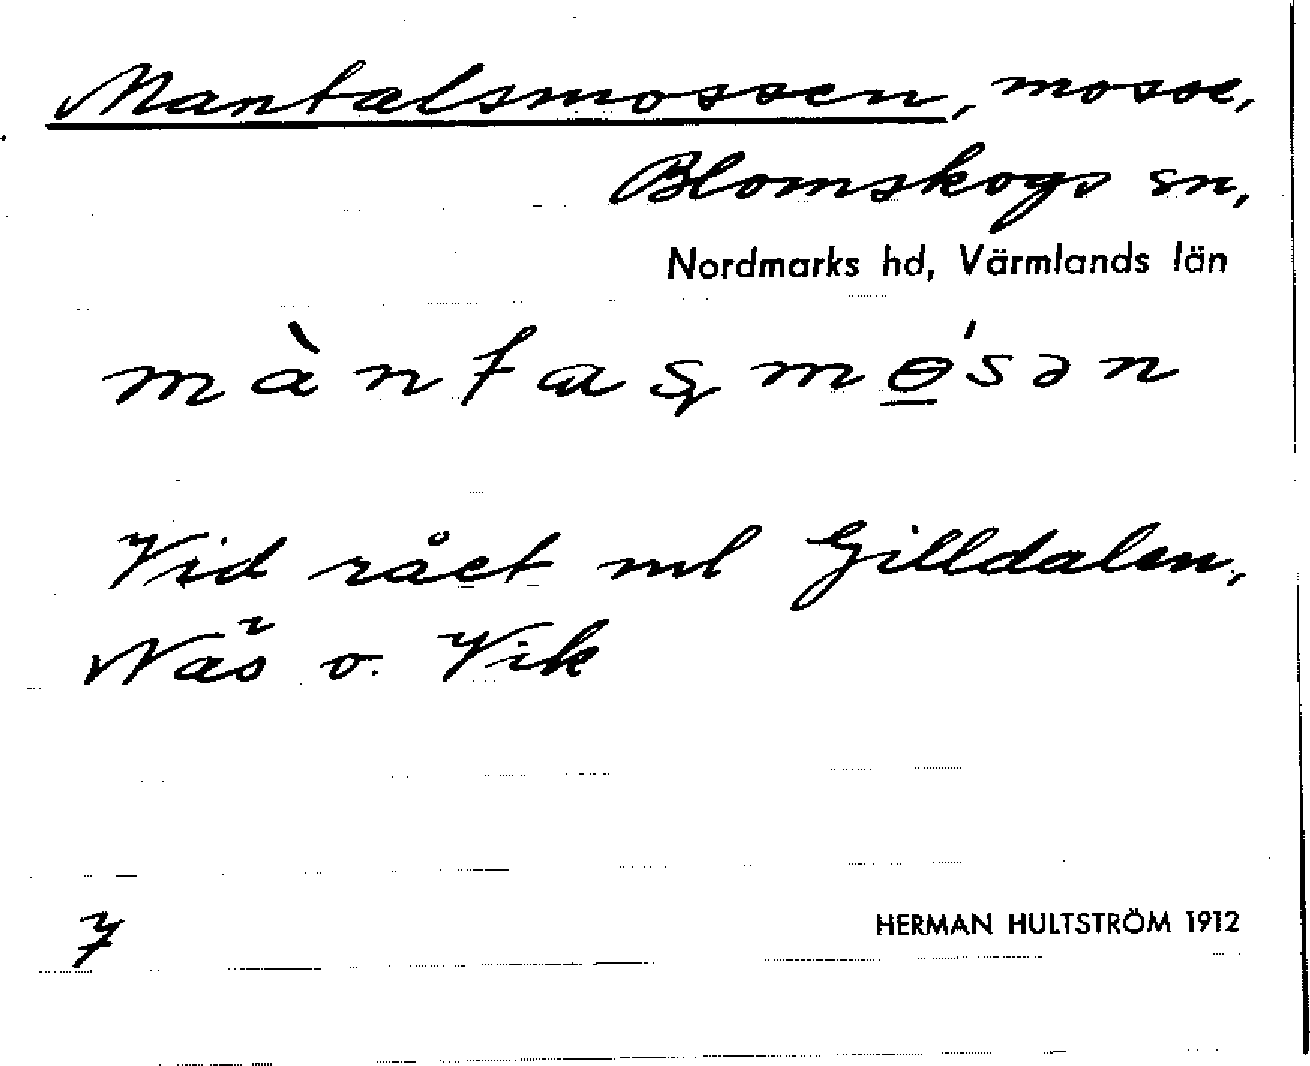 Mantalsmossen, mosse,
Blomskogs sn,
Nordmarks hd, Värmlands län
màntaʂmɵ̲́sən
Vid rået ml Gilldalen,
Näs o. Vik
7
HERMAN HULTSTRÖM 1912